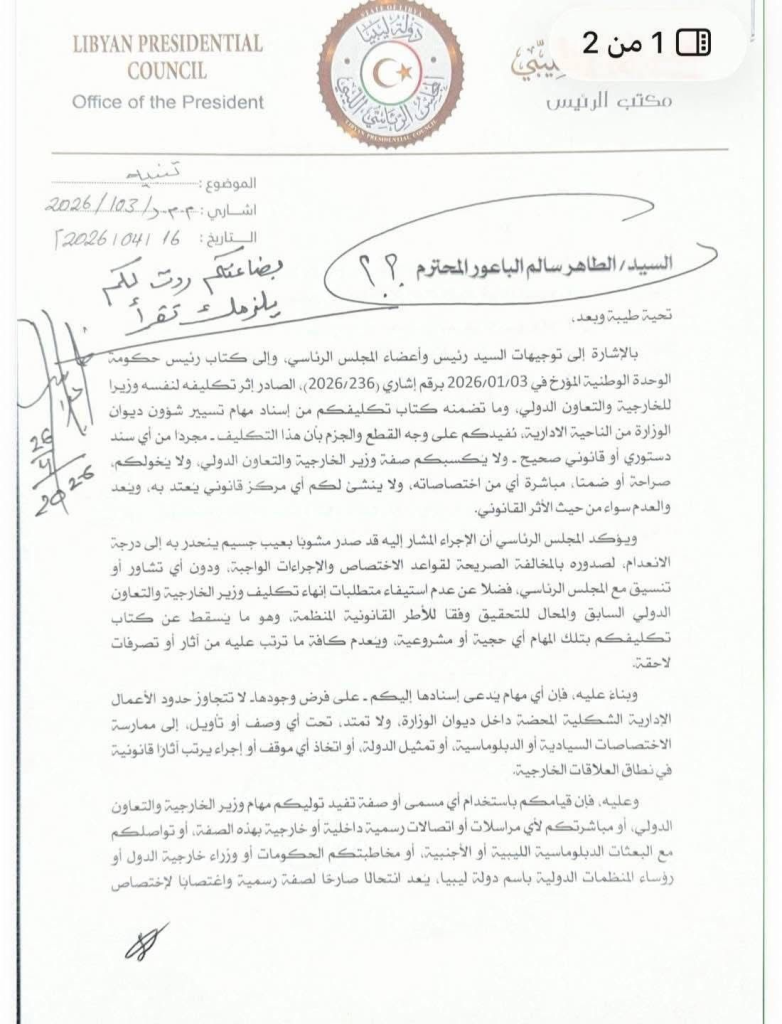 1 من 2
LIBYAN PRESIDENTIAL
COUNCIL
Office of the President
دولة ليبيا
المجلس الرئاسي الليبي
STATE OF LIBYA
LIBYAN PRESIDENTIAL COUNCIL
مكتب الرئيس
الموضوع: تنبيه
اشاري: م.م.ر/103/2026
التاريخ: 16/04/2026م
السيد/الطاهر سالم الباعور المحترم ؟؟
بضاعتكم ردت لكم
يلزمك تقرأ
26
4
2026
تحية طيبة وبعد،
بالإشارة إلى توجيهات السيد رئيس وأعضاء المجلس الرئاسي، وإلى كتاب رئيس حكومة
الوحدة الوطنية المؤرخ في 2026/01/03 برقم إشاري (2026/236)، الصادر إثر تكليفه لنفسه وزيرا
للخارجية والتعاون الدولي، وما تضمنه كتاب تكليفكم من إسناد مهام تسيير شؤون ديوان
الوزارة من الناحية الادارية، نفيدكم على وجه القطع والجزم بأن هذا التكليف ـ مجردا من أي سند
دستوري أو قانوني صحيح ـ ولا يكسبكم صفة وزير الخارجية والتعاون الدولي، ولا يخولكم،
صراحة أو ضمنا، مباشرة أي من اختصاصاته، ولا ينشئ لكم أي مركز قانوني يعتد به، ويُعد
والعدم سواء من حيث الأثر القانوني.
ويؤكد المجلس الرئاسي أن الإجراء المشار إليه قد صدر مشوبًا بعيب جسيم ينحدر به إلى درجة
الانعدام، لصدوره بالمخالفة الصريحة لقواعد الاختصاص والإجراءات الواجبة، ودون أي تشاور أو
تنسيق مع المجلس الرئاسي، فضلا عن عدم استيفاء متطلبات إنهاء تكليف وزير الخارجية والتعاون
الدولي السابق والمحال للتحقيق وفقا للأطر القانونية المنظمة، وهو ما يُسقط عن كتاب
تكليفكم بتلك المهام أي حجية أو مشروعية، ويُعدم كافة ما ترتب عليه من آثار أو تصرفات
لاحقة.
وبناءً عليه، فإن أي مهام يدعى إسنادها إليكم ـ على فرض وجودها ـ لا تتجاوز حدود الأعمال
الإدارية الشكلية المحضة داخل ديوان الوزارة، ولا تمتد، تحت أي وصف أو تأويل، إلى ممارسة
الاختصاصات السيادية أو الدبلوماسية، أو تمثيل الدولة، أو اتخاذ أي موقف أو إجراء يرتب آثارًا قانونية
في نطاق العلاقات الخارجية.
وعليه، فإن قيامكم باستخدام أي مسمى أو صفة تفيد توليكم مهام وزير الخارجية والتعاون
الدولي، أو مباشرتكم لأي مراسلات أو اتصالات رسمية داخلية أو خارجية بهذه الصفة، أو تواصلكم
مع البعثات الدبلوماسية الليبية أو الأجنبية، أو مخاطبتكم الحكومات أو وزراء خارجية الدول أو
رؤساء المنظمات الدولية باسم دولة ليبيا، يُعد انتحالًا صارخًا لصفة رسمية واغتصابًا لإختصاص